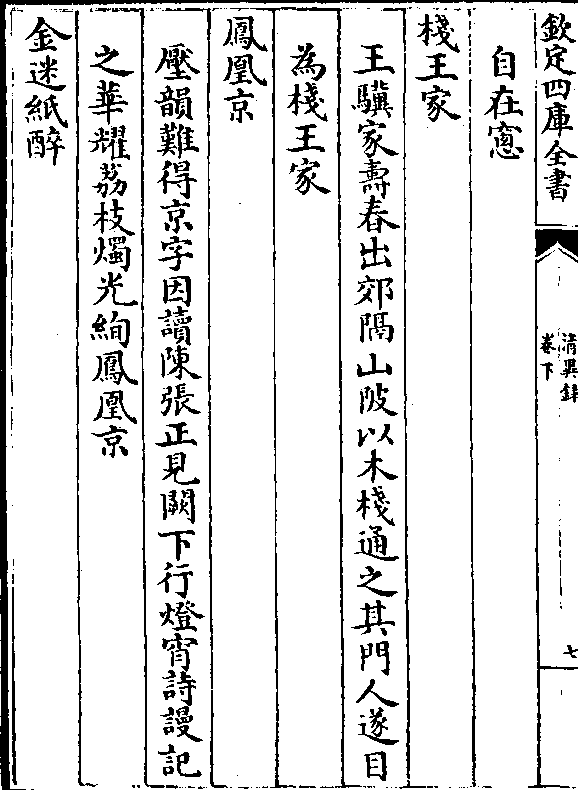 欽定四庫全書
清異錄
卷下
七
自在窻
棧王家
王驥家壽春出郊隔山陂以木棧通之其門人遂目
為棧王家
鳳凰京
壓韻難得京字因讀陳張正見闕下行燈宵詩謾記
之華耀荔枝燭光絢鳳凰京
金迷紙醉